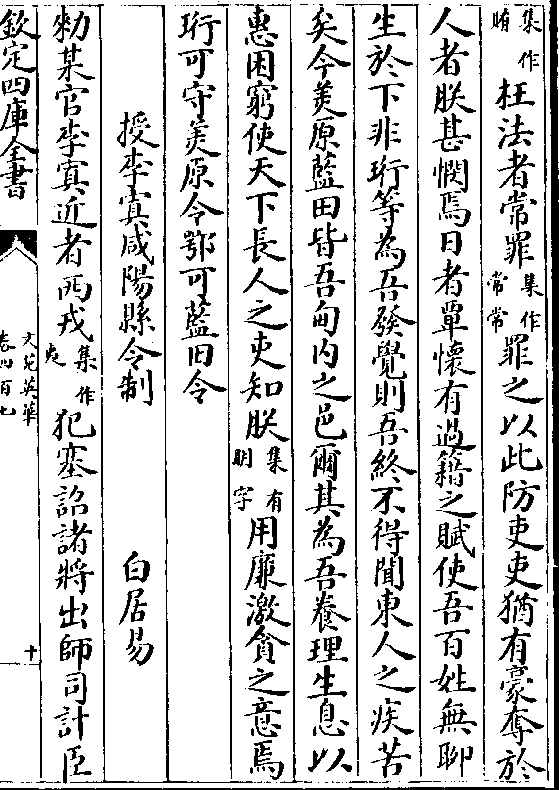 集作賄枉法者常罪集作常常罪之以此防吏吏猶有豪奪於
人者朕甚憫焉日者覃懷有過籍之賦使吾百姓無聊
生於下非珩等為吾發覺則吾終不得聞東人之疾苦
矣今美原藍田皆吾甸內之邑爾其為吾養理生息以
惠困窮使天下長人之吏知朕集有明字用廉激貪之意焉
珩可守美原令鄂可藍田令
授李寘咸陽縣令制 白居易
勑某官李寘近者西戎集作犯塞詔諸將出師司計臣
欽定四庫全書
文苑英華
卷四百七
十